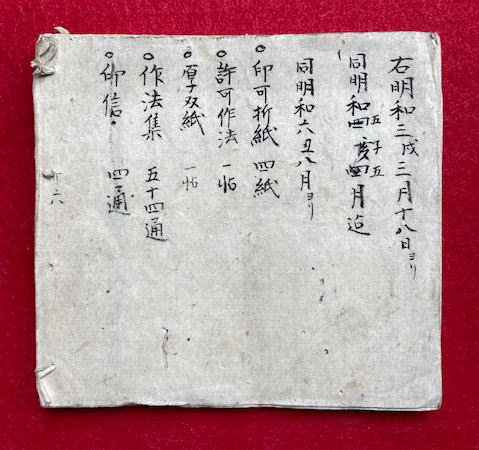 右明和三戌三月十八日ヨリ
同明和五子五月迄
同明和六丑八月ヨリ
○印可折紙 四紙
○許可作法 一帖
○厚双紙 一帖
○作法集 五十四通
○印信 四通